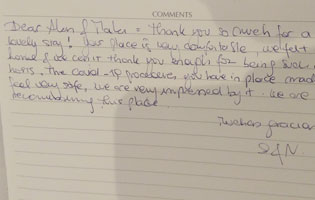 COMMENTS
Dear Alan & = Thank you so much for a
lovely stay! Your place is very comfortable, we felt
home & we can't thank you enough for being such
hosts. The Covid-19 procedure, you have in place made
feel very safe, we are very impressed by it. We are
recommending this place.
Muchas gracias